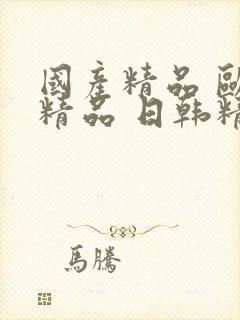 國產精品 歐
精品 日韩精
馬騰